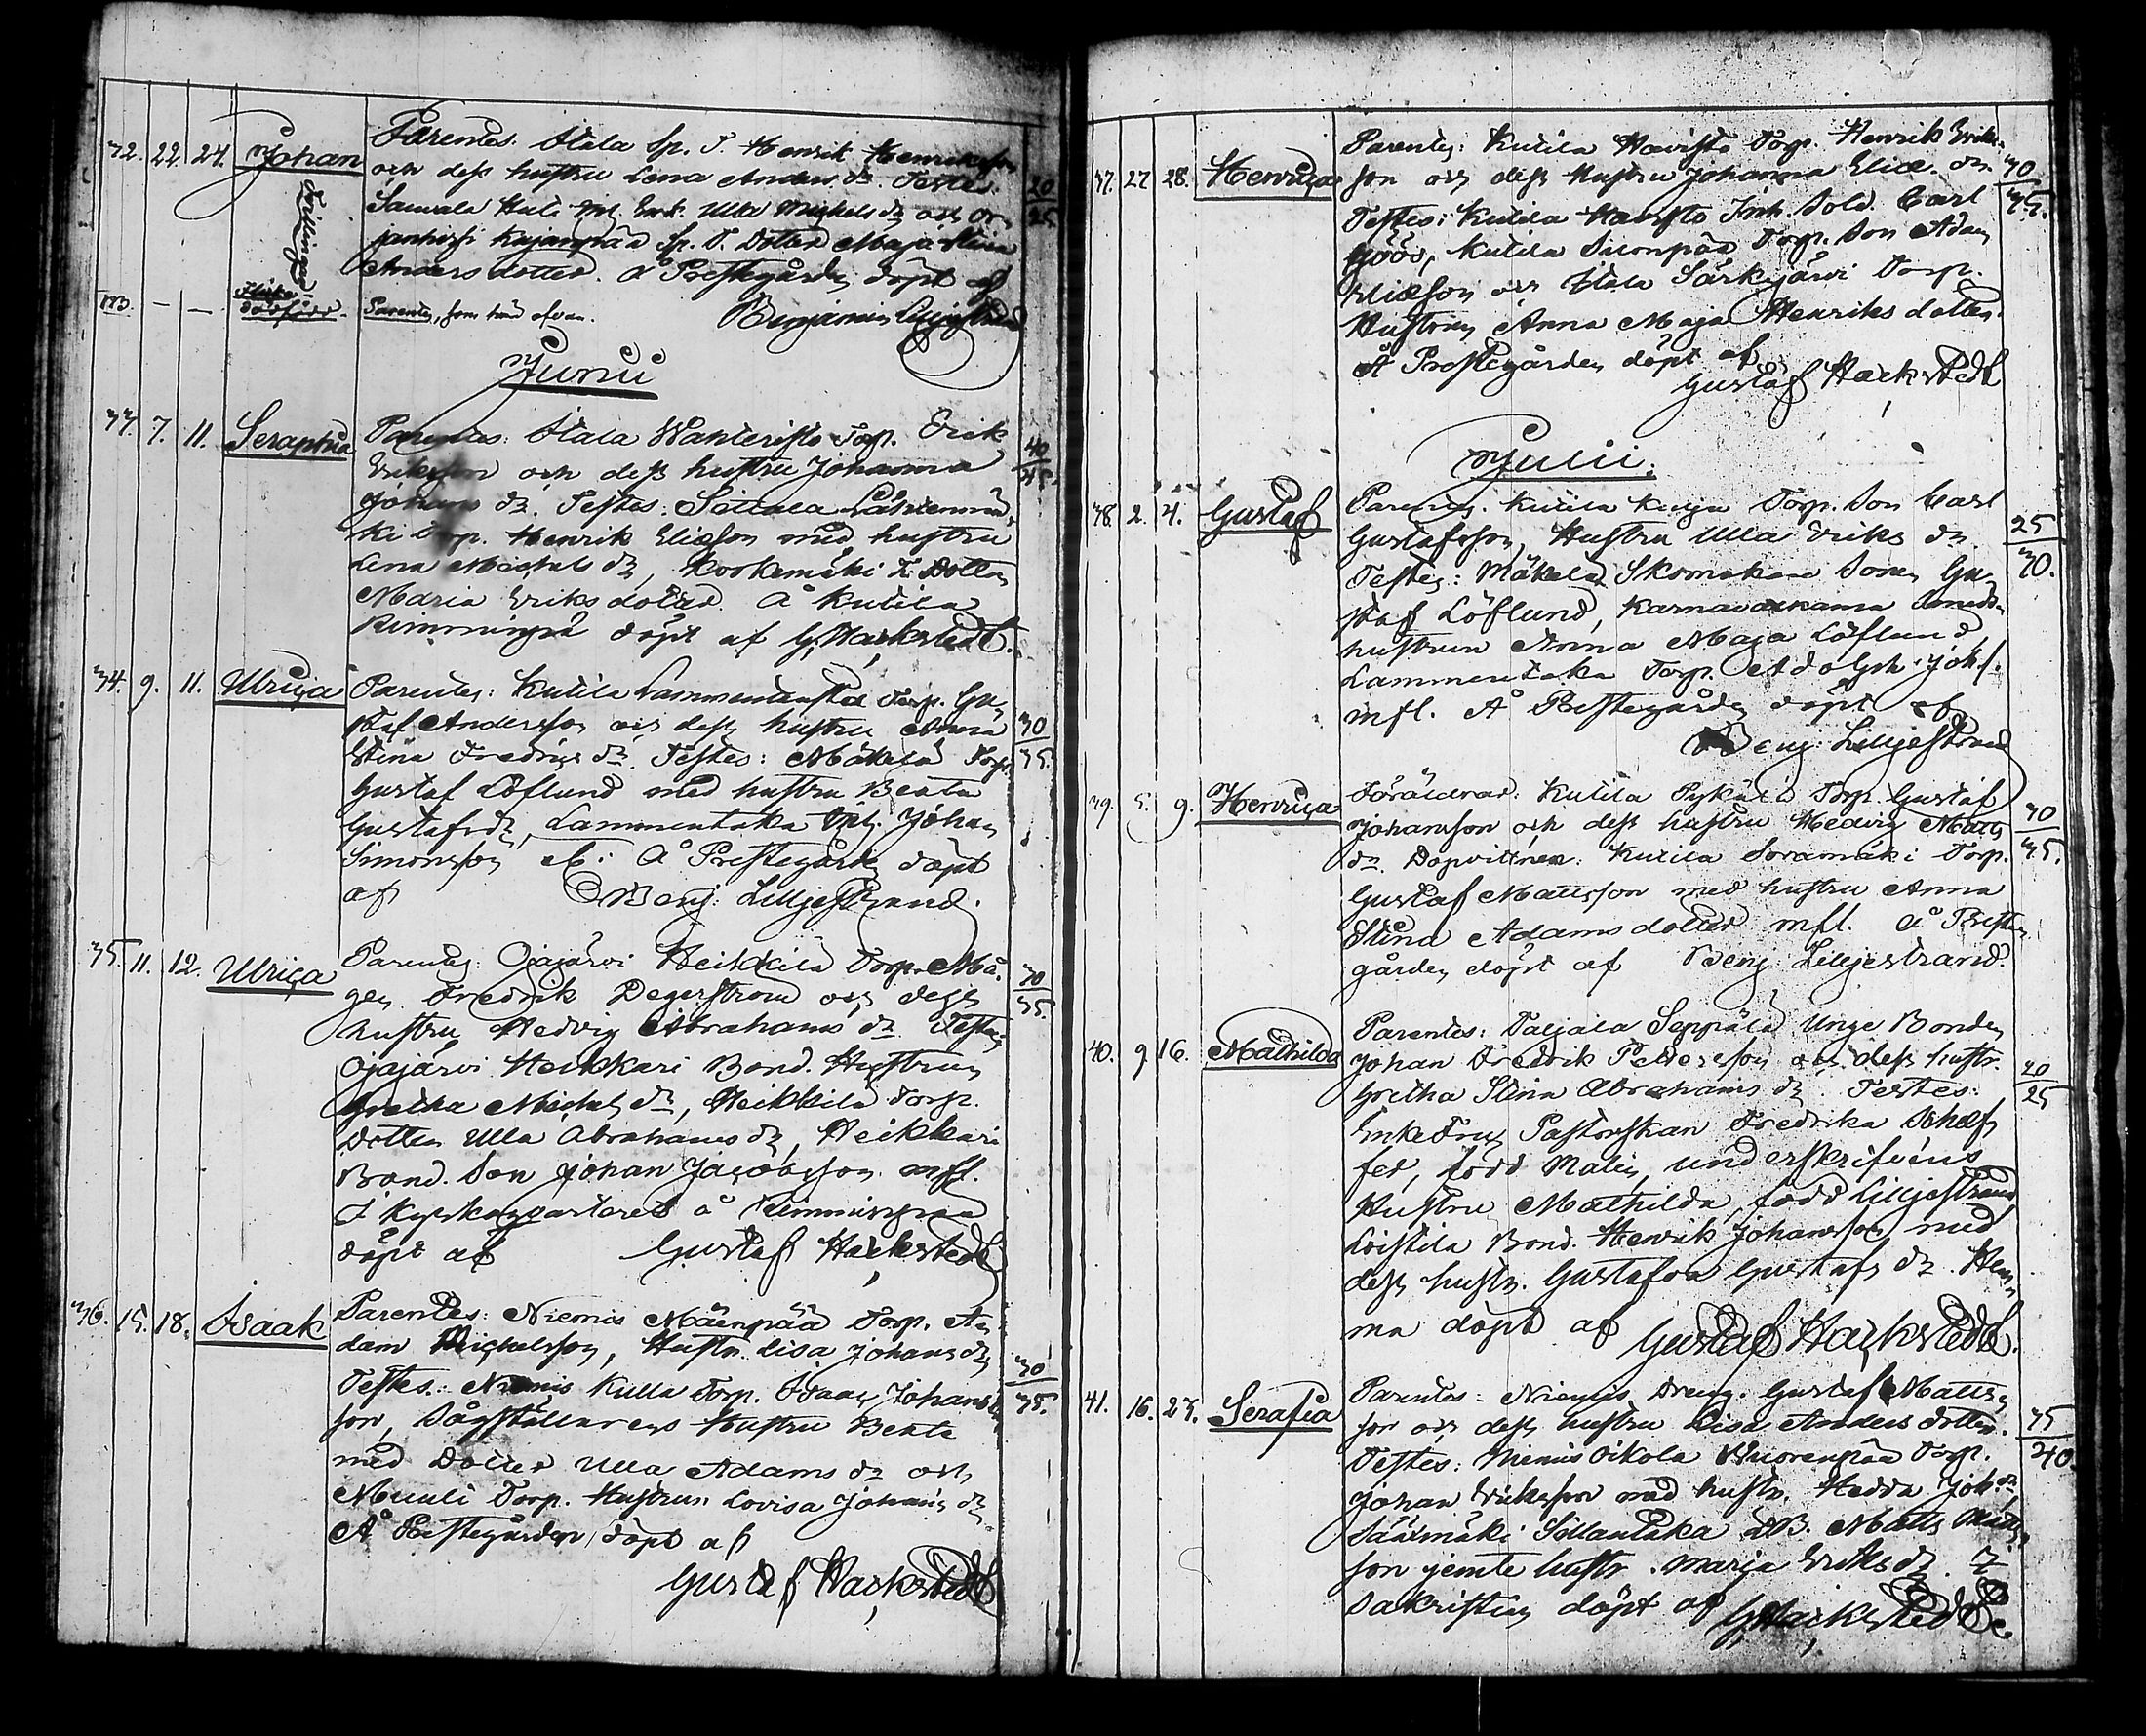 32. 22. 24. Johan Parentes: Itala Sp. T. Henrik Henriksson
och dess hustru Lena Anders dr. Testes: 20/25
Sauvala Ulla Michels dr och
Kujanpää Sp. T. Dotter Maja Stina
Anders dotter. Å Prestegården döpt af
Tvillingar
m. – – Flicka dödfödd. Parentes, som här ofvan. Benjamin Lilljestrand
Junii
33. 7. 11. Seraphia Parentes: Itala Wahteristo Torp. Erik 40/45
Eriksson och dess hustru Johanna
Johans dr. Testes: Sattala Lähteenmä,
ki Torp. Henrik Eliæsson med hustru
Lena Michels dr, Koskemäki T. Dotter
Maria Eriks dotter. Å Kutila
Rimmingså döpt af G. Hackstedt.
34. 9. 11. Ulrica Parentes: Kutila Lammentausta Torp. Gu,
staf Andersson och dess hustru Anna 30/35.
Stina Fredrics dr. Testes: Mäkelä Torp.
Gustaf Löflund med hustru Beata
Gustafs dr, Lammentaka Johan
Simonsson &c. Å Prestegården döpt
af Benj: Lilljestrand.
35. 11. 12. Ulrica Parentes: Ojajärvi Heikkilä Torp. Må, 30/35.
gen Fredrik Degerström och dess
hustru Hedvig Abrahams dr. Testes
Ojajärvi Heikkari Bond. Hustrun
Gretha Michels dr, Heikkilä Torp.
Dotter Ulla Abrahams dr, Heikkari
Bond. Son Johan Jacobsson mfl.
I Kyrkoqvarteret å Rimmingsåa
döpt af Gustaf Hackstedt
36. 15. 18. Isaak Parentes: Niemis Mäenpää Torp. A,
dam Michelsson, Hustr. Lisa Johans dr 30/35.
Testes: Niemis Kulla Torp. Isaac Johans
son, Sågställarens Hustru Beata
med Dotter Ulla Adams dr och
Muuli Torp. Hustrun Lovisa Johans dr
Å Prestegården döpt af
Gustaf Hackstedt
37. 27 28. Henrica Parentes: Kutila Havisto Torp. Henrik Eriks, 30/35.
son och dess Hustru Johanna Eliæ dr.
Testes: Kutila Havisto Inh. Sold. Carl
Gööd, Kutila Suonpää Torp. Son Adam
Eliæson och Itala Särkijärvi Torp.
Hustrun Anna Maja Henriks dotter.
Å Prestegården döpt af
Gustaf Hackstedt
Julii.
38. 2. 4. Gustaf Parentes: Kutila Kuja Torp. Son Carl 25/30.
Gustafsson, Hustru Ulla Eriks dr.
Testes: Mäkelä Skomakare Sonen Gu,
staf Löflund, Smeds,
hustrun Anna Maja Löflund
Lammentaka Torp. Adolph Joh:s.
mfl. Å Prestegården döpt af
Benj: Lilljestrand
39. 5. 9. Henrica Föräldrar: Kutila Pykälä Torp. Gustaf 30/35.
Johansson och dess hustru Hedvig Matts
dr. Dopvittnen: Kutila Soramäki Torp.
Gustaf Mattsson med hustru Anna
Stina Adams dotter mfl. Å Preste,
gården döpt af Benj: Lilljestrand.
40. 9 16. Mathilda Parentes: Taljala Seppälä Unge Bonden
Johan Fredrik Pettersson och dess hustr. 20/25
Gretha Stina Abrahams dr. Testes:
Enke Fru Pastorskan Fredrika Schæf,
fer, född Malin, underskrifvens
Hustru Mathilda, född Lilljestrand,
Loistila Bond. Henrik Johansson med
dess hustr. Gustafva Gustafs dr. Hem,
ma döpt af Gustaf Hackstedt.
41. 16. 23. Serafia Parentes: Niemis Dreng. Gustaf Matts,
son och dess hustru Lisa Anders dotter. 35/40
Testes: Niemis Oikola Wuorenpää Torp.
Johan Eriksson med hustr. Hedda Joh. dr
Sääxmäki Sillantaka Matts Matts,
son jemte hustr. Maria Eriks dr. I
Sakristian döpt af G. Hackstedt.